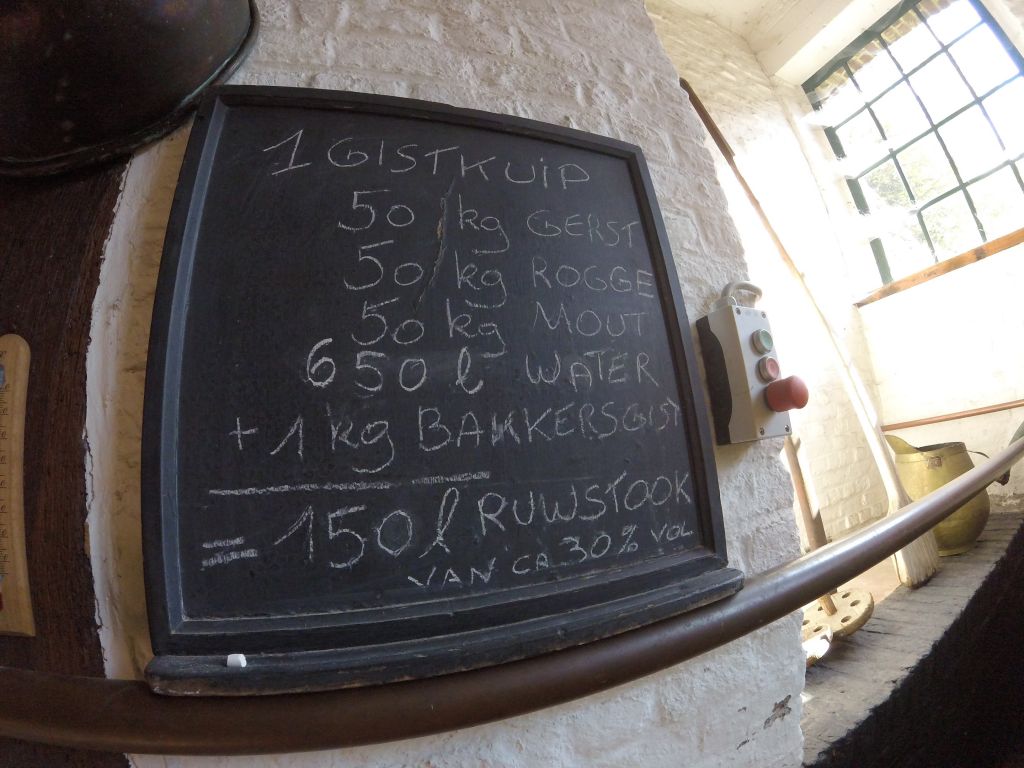 1 GISTKUIP
50 kg GERST
50 kg ROGGE
50 kg MOUT
650 l WATER
+ 1 kg BAKKERSGIST
= 150 l RUWSTOOK
VAN CA 30% VOL